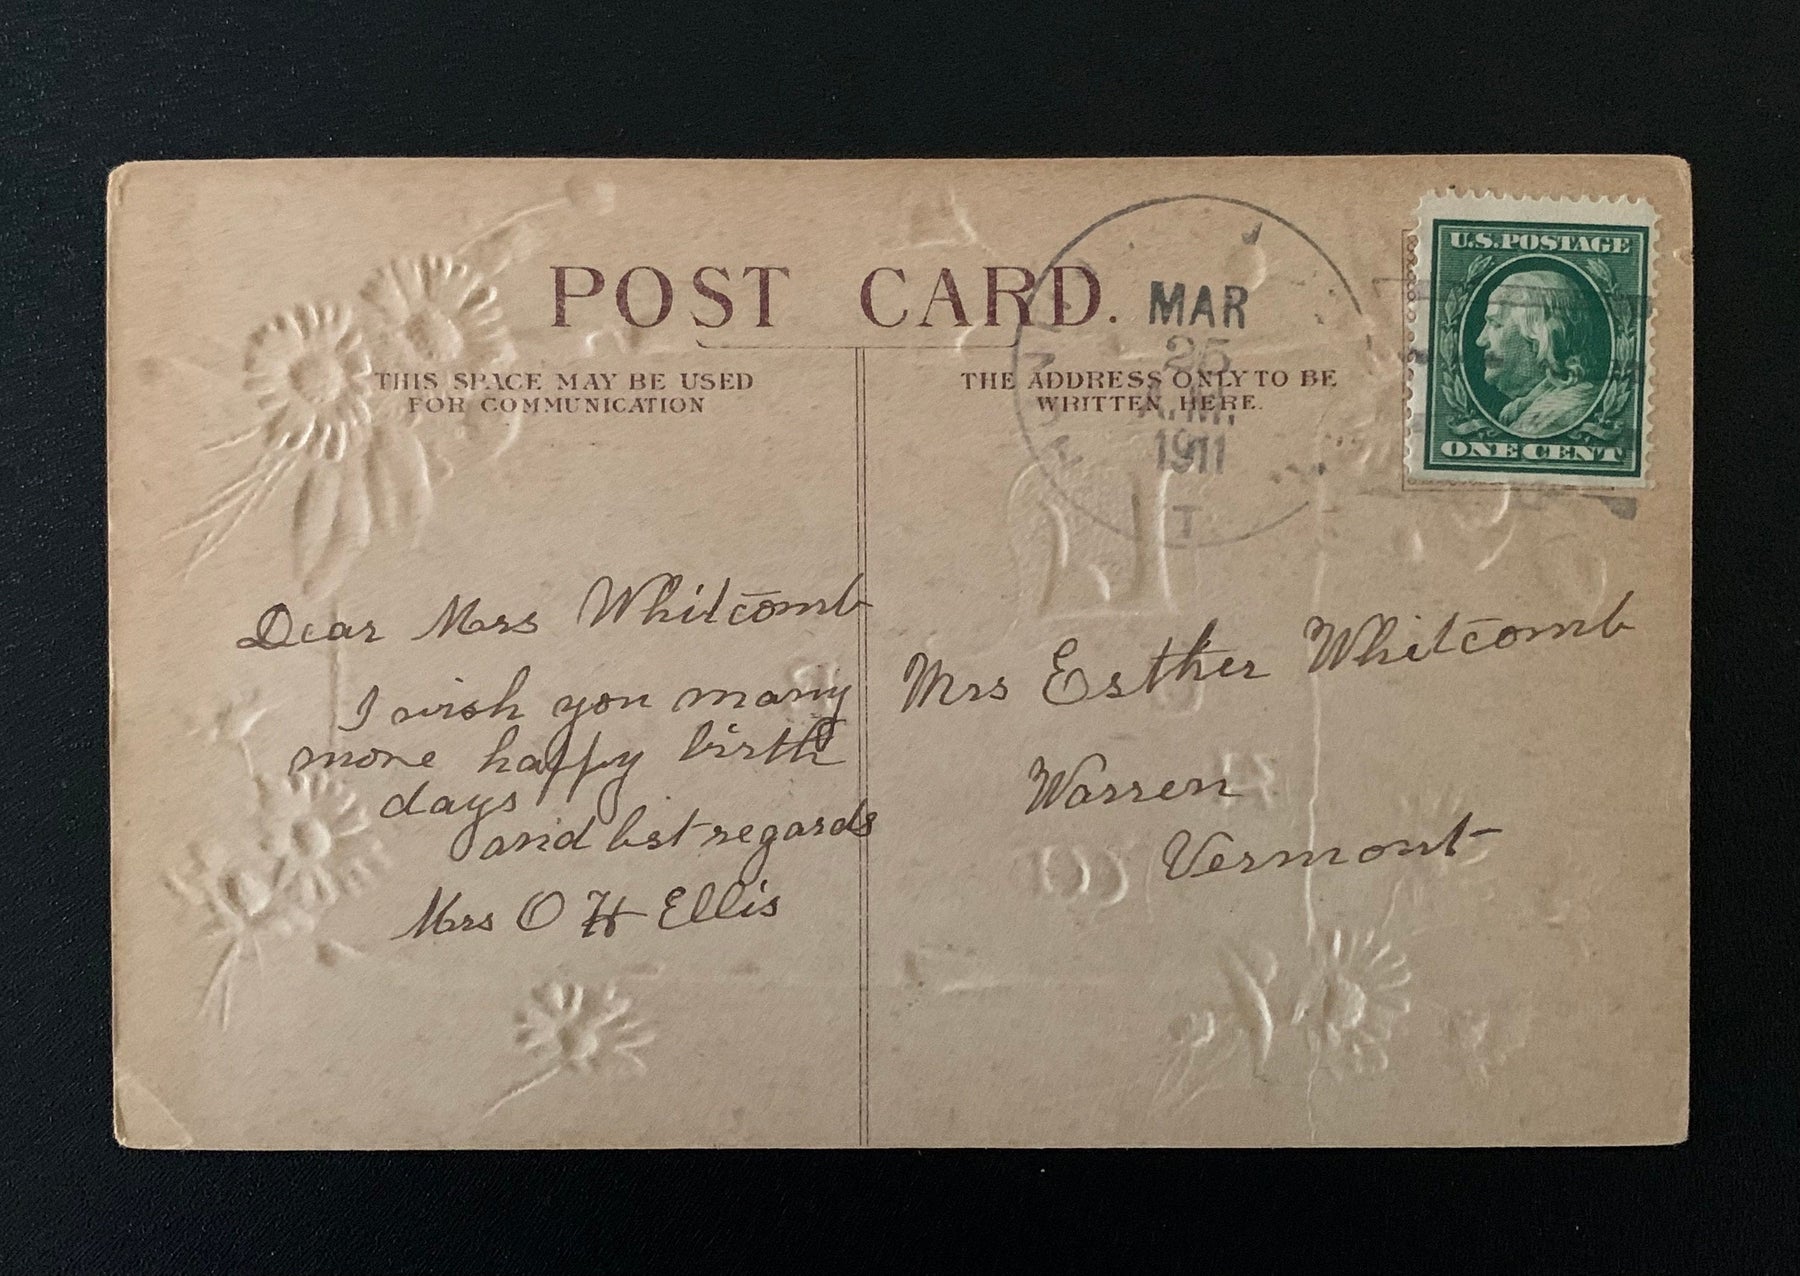 POST CARD.
THIS SPACE MAY BE USED
FOR COMMUNICATION
THE ADDRESS ONLY TO BE
WRITTEN HERE.
MAR
25
A.M.
1911
T.
U.S. POSTAGE
ONE CENT
Dear Mrs Whitcomb
I wish you many
more happy birth
days
and best regards
Mrs O H Ellis
Mrs Esther Whitcomb
Warren
Vermont